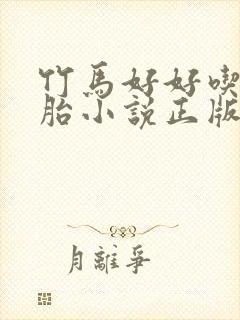 竹馬好好喫
胎小説正版
月離爭